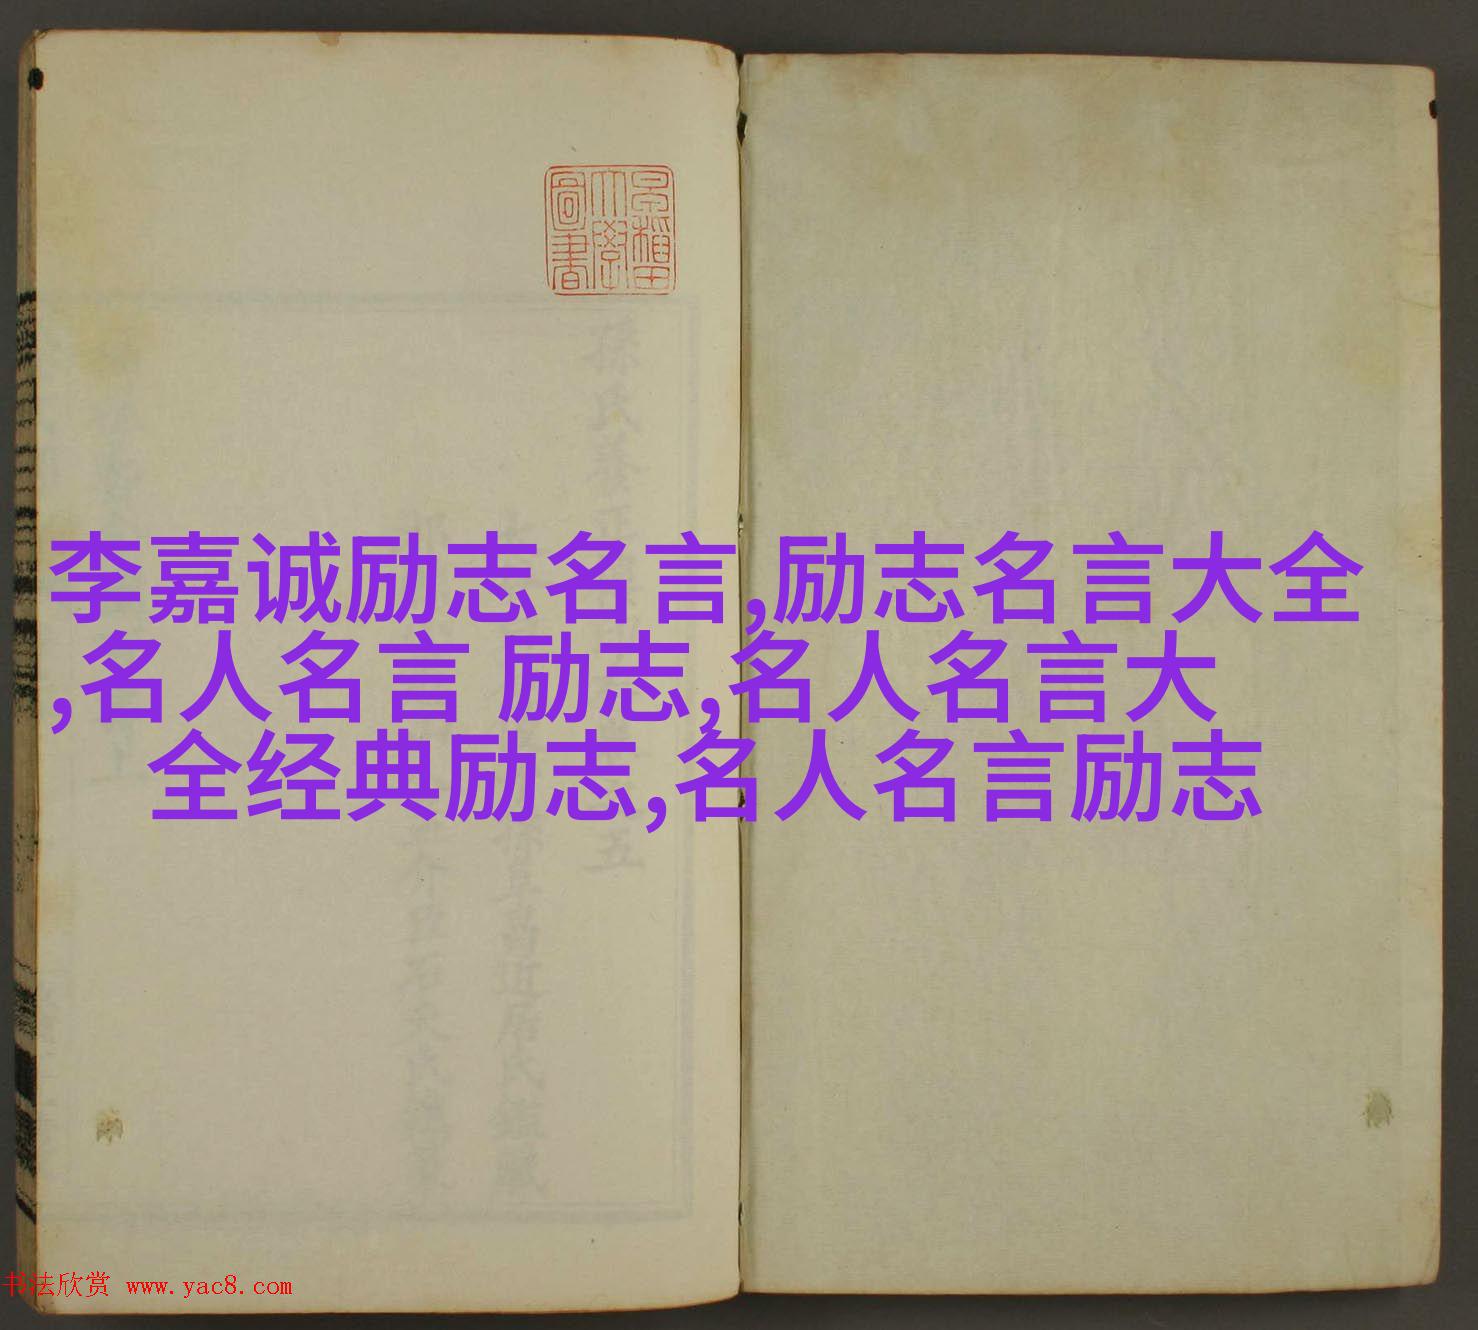 早稲田大學圖書
李嘉诚励志名言,励志名言大全
,名人名言 励志,名人名言大
全经典励志,名人名言励志
书法欣赏 www.yac8.com